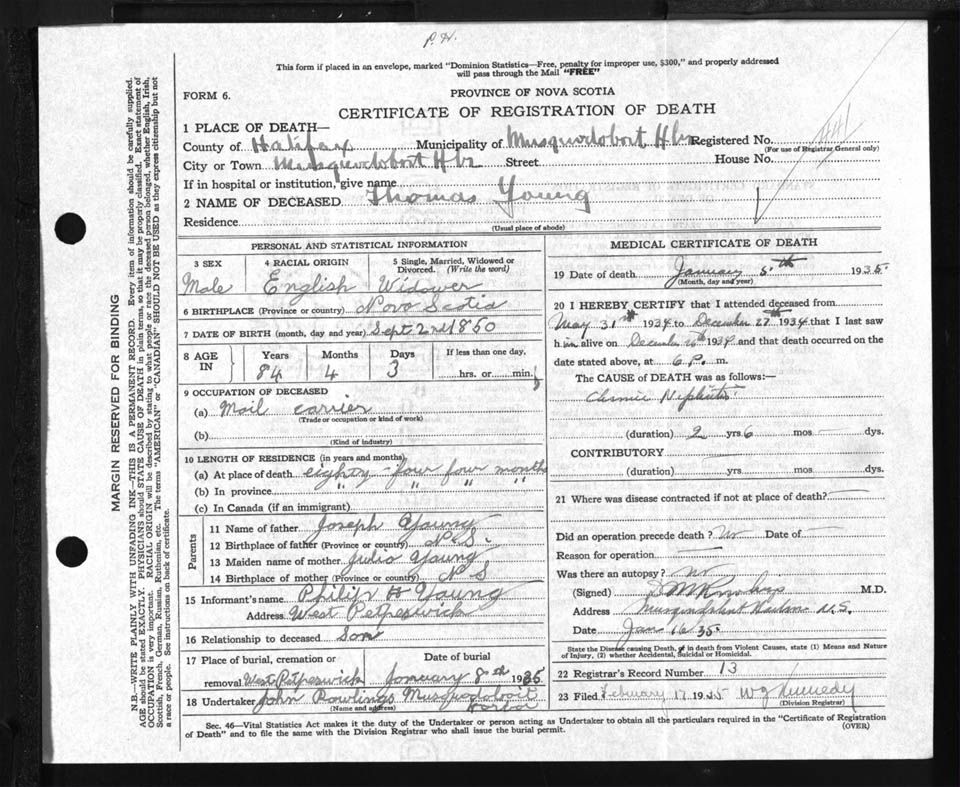 P. H.
This form if placed in an envelope, marked "Dominion Statistics—Free, penalty for improper use, $300," and properly addressed
will pass through the Mail "FREE"
FORM 6.
PROVINCE OF NOVA SCOTIA
CERTIFICATE OF REGISTRATION OF DEATH
1 PLACE OF DEATH—
County of Halifax Municipality of Musquodoboit Hbr Registered No.
(For use of Registrar General only)
City or Town Musquodoboit Hbr Street House No.
If in hospital or institution, give name
2 NAME OF DECEASED Thomas Young
Residence
(Usual place of abode)
PERSONAL AND STATISTICAL INFORMATION
3 SEX 4 RACIAL ORIGIN 5 Single, Married, Widowed or
Divorced. (Write the word)
Male English Widower
6 BIRTHPLACE (Province or country) Nova Scotia
7 DATE OF BIRTH (month, day and year) Sept 2nd 1850
8 AGE IN Years Months Days If less than one day,
84 4 3 hrs. or min.
9 OCCUPATION OF DECEASED
(a) Mail carrier
(Trade or occupation or kind of work)
(b)
(Kind of industry)
10 LENGTH OF RESIDENCE (in years and months)
(a) At place of death eighty-four four months
(b) In province " " " "
(c) In Canada (if an immigrant)
Parents
11 Name of father Joseph Young
12 Birthplace of father (Province or country) N.S.
13 Maiden name of mother Julia Young
14 Birthplace of mother (Province or country) N S
15 Informant's name Philip H Young
Address West Petpeswick
16 Relationship to deceased Son
17 Place of burial, cremation or Date of burial
removal West Petpeswick January 8th 1935
18 Undertaker John Rowlings Musquodoboit
(Name and address) Harbor
MEDICAL CERTIFICATE OF DEATH
19 Date of death January 5th 1935
(Month, day and year)
20 I HEREBY CERTIFY that I attended deceased from
May 31st 1934 to December 27th 1934 that I last saw
him alive on December 1934 and that death occurred on the
date stated above, at 6 P. m.
The CAUSE of DEATH was as follows:—
Chronic Nephritis
(duration) 2 yrs 6 mos — dys.
CONTRIBUTORY
(duration) yrs. mos. dys.
21 Where was disease contracted if not at place of death?
Did an operation precede death? No Date of
Reason for operation
Was there an autopsy? No
(Signed) M.D.
Address Musquodoboit Harbor N.S.
Date Jan 16 35
State the Disease causing Death, or in death from Violent Causes, state (1) Means and Nature
of Injury, (2) whether Accidental, Suicidal or Homicidal.
22 Registrar's Record Number 13
23 Filed February 17 1935 W G Kennedy
(Division Registrar)
Sec. 46—Vital Statistics Act makes it the duty of the Undertaker or person acting as Undertaker to obtain all the particulars required in the "Certificate of Registration
of Death" and to file the same with the Division Registrar who shall issue the burial permit.
(OVER)
MARGIN RESERVED FOR BINDING
N.B.—WRITE PLAINLY WITH UNFADING INK—THIS IS A PERMANENT RECORD. Every item of information should be carefully supplied.
AGE should be stated EXACTLY. PHYSICIANS should STATE CAUSE OF DEATH in plain terms, so that it may be properly classified. Exact statement of
OCCUPATION is very important. RACIAL ORIGIN will be described by stating to what people or race the deceased person belonged, whether English, Irish,
Scottish, French, German, Russian, Ruthenian, etc. The terms "AMERICAN" or "CANADIAN" SHOULD NOT BE USED as they express citizenship but not
a race or people. See instructions on back of certificate.